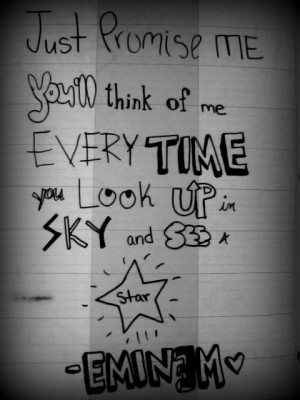 Just Promise ME
You'll think of me
EVERY TIME
you Look UP in
SKY and SEE A
Star
-EMINEM♥